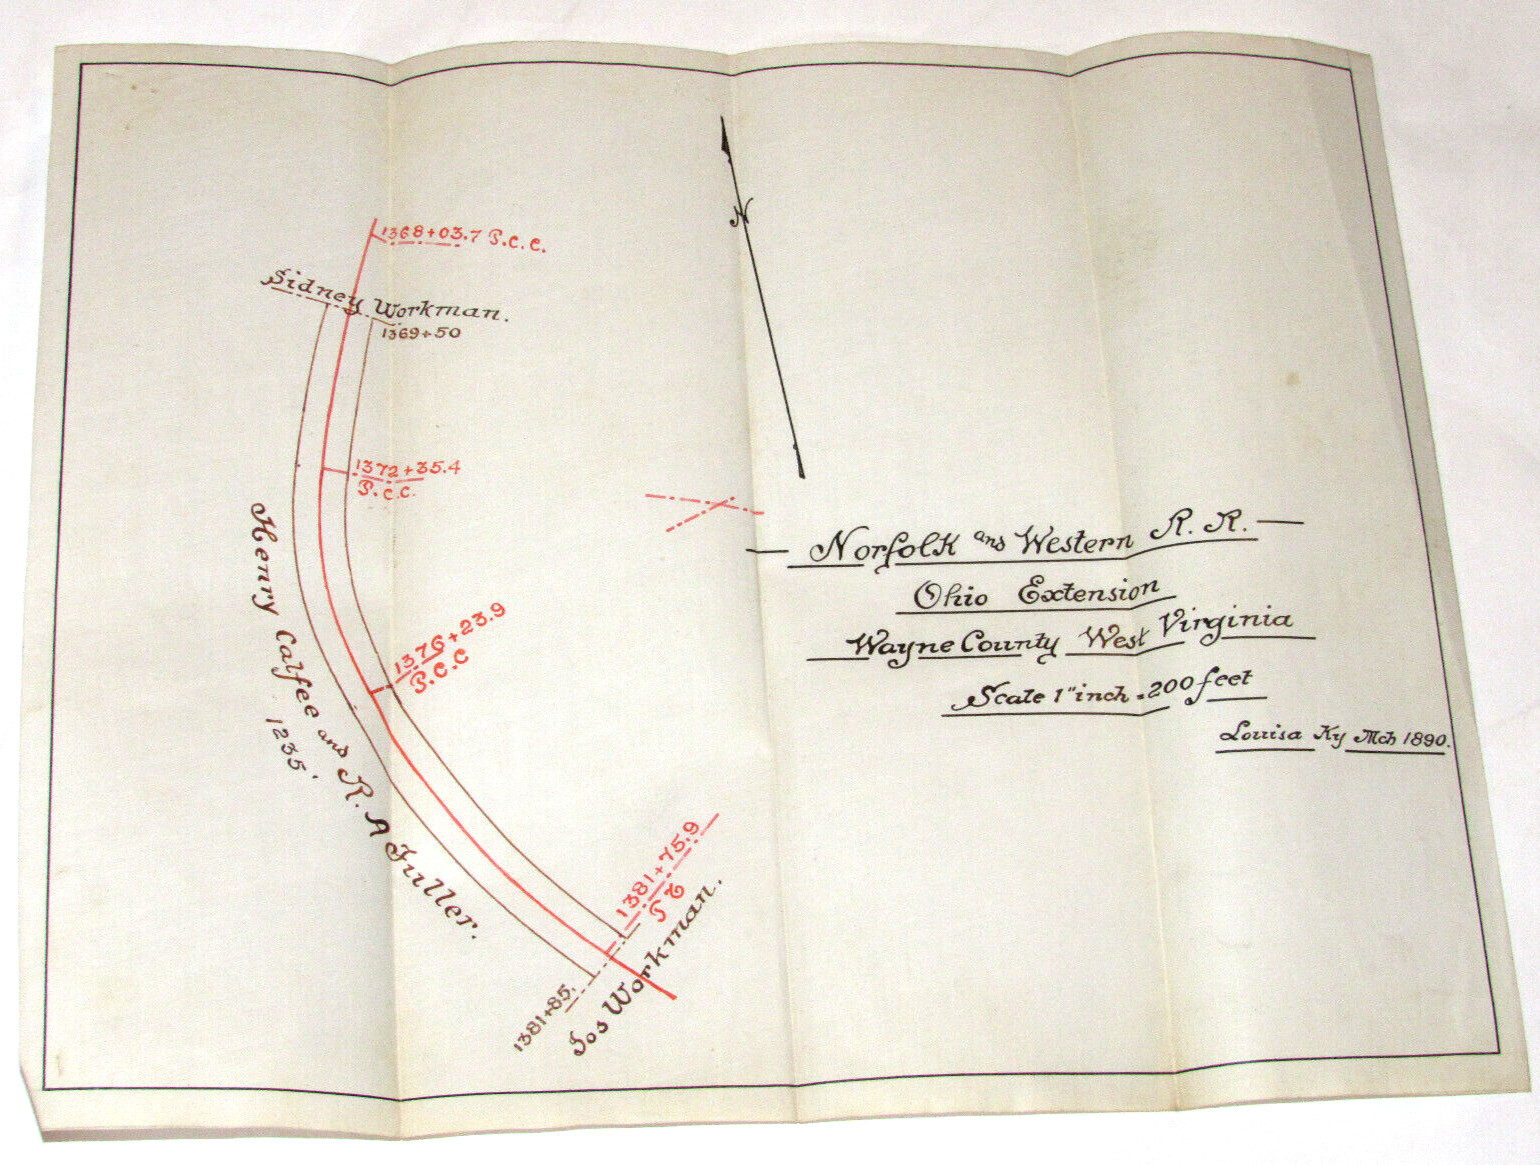 1368+03.7 P.C.C.
Sidney Workman.
1369+50
1372+35.4
P.C.C.
Henry Calfee and R. A Fuller.
1235'
1376+23.9
P.C.C
1381+75.9
P T
Jos Workman.
1381+85.
N
Norfolk and Western R. R.
Ohio Extension
Wayne County West Virginia
Scale 1" inch = 200 feet
Louisa Ky Mch 1890.